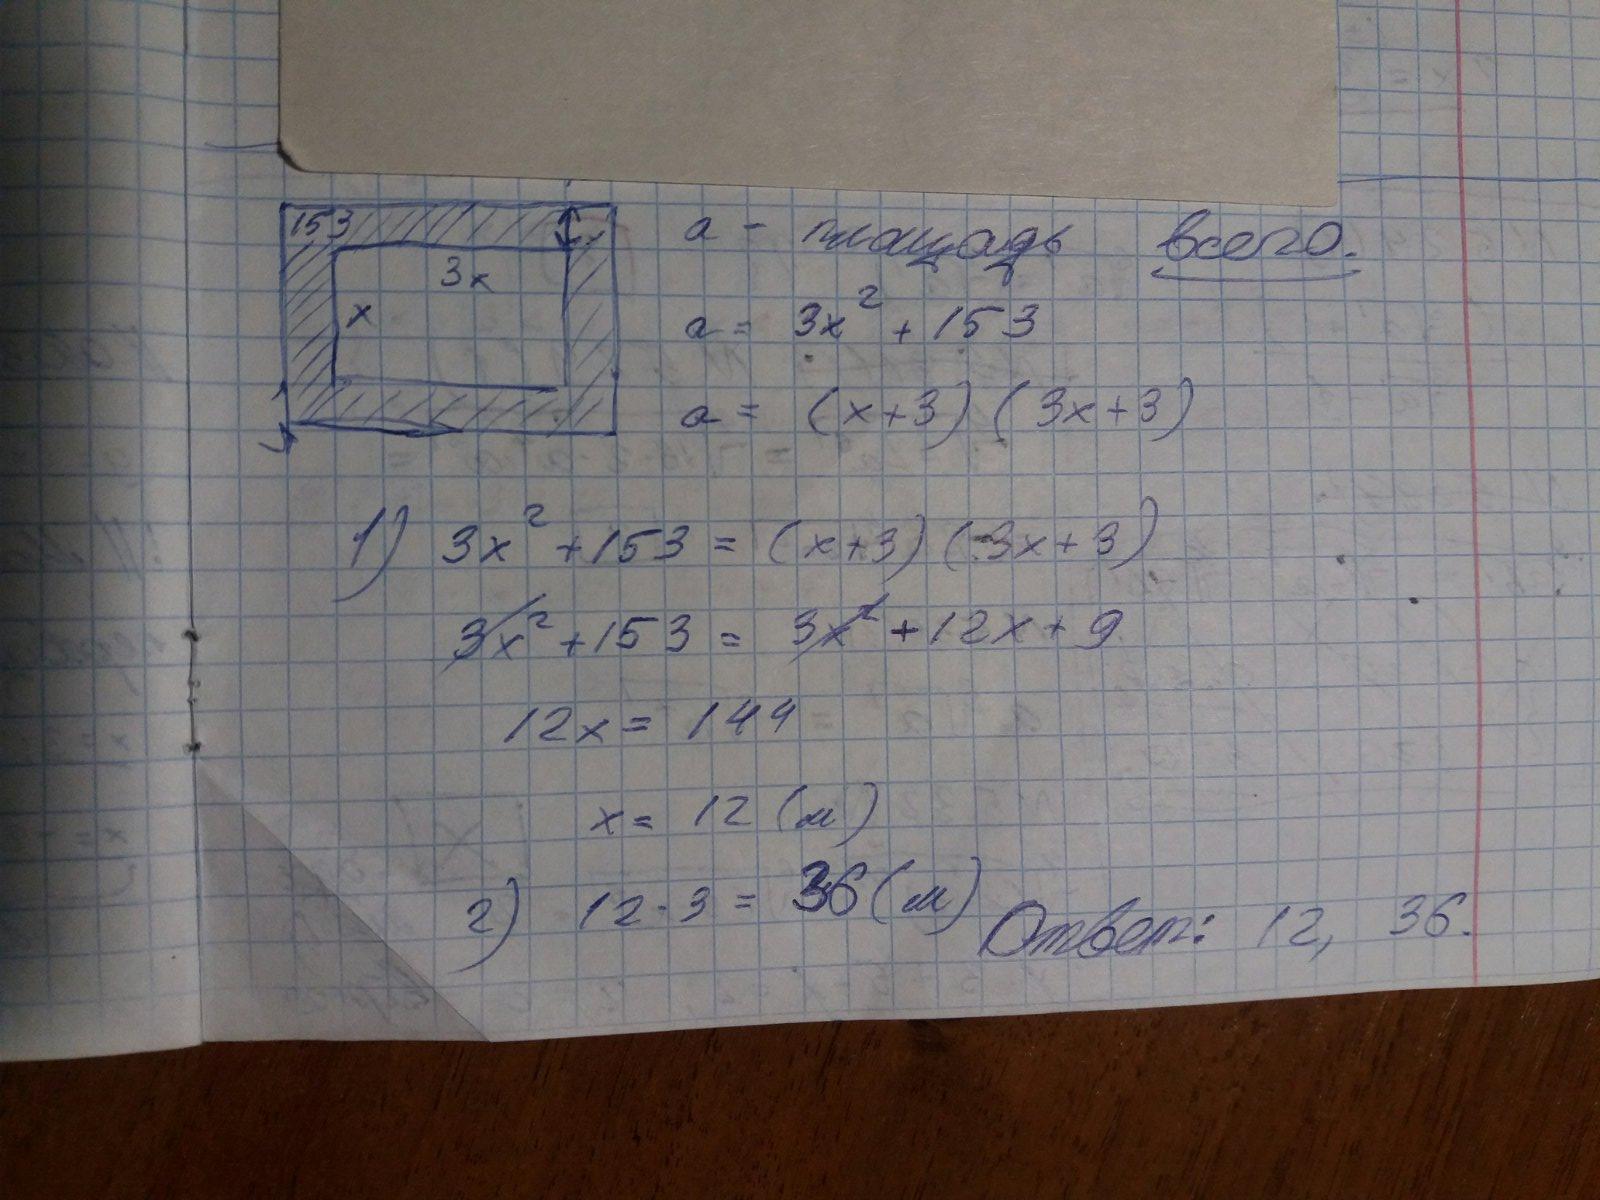 153
3x
x
a - площадь всего.
a = 3x² + 153
a = (x+3)(3x+3)
1) 3x² + 153 = (x+3)(3x+3)
3x² + 153 = 3x² + 12x + 9
12x = 144
x = 12 (м)
2) 12 · 3 = 36 (м) Ответ: 12, 36.